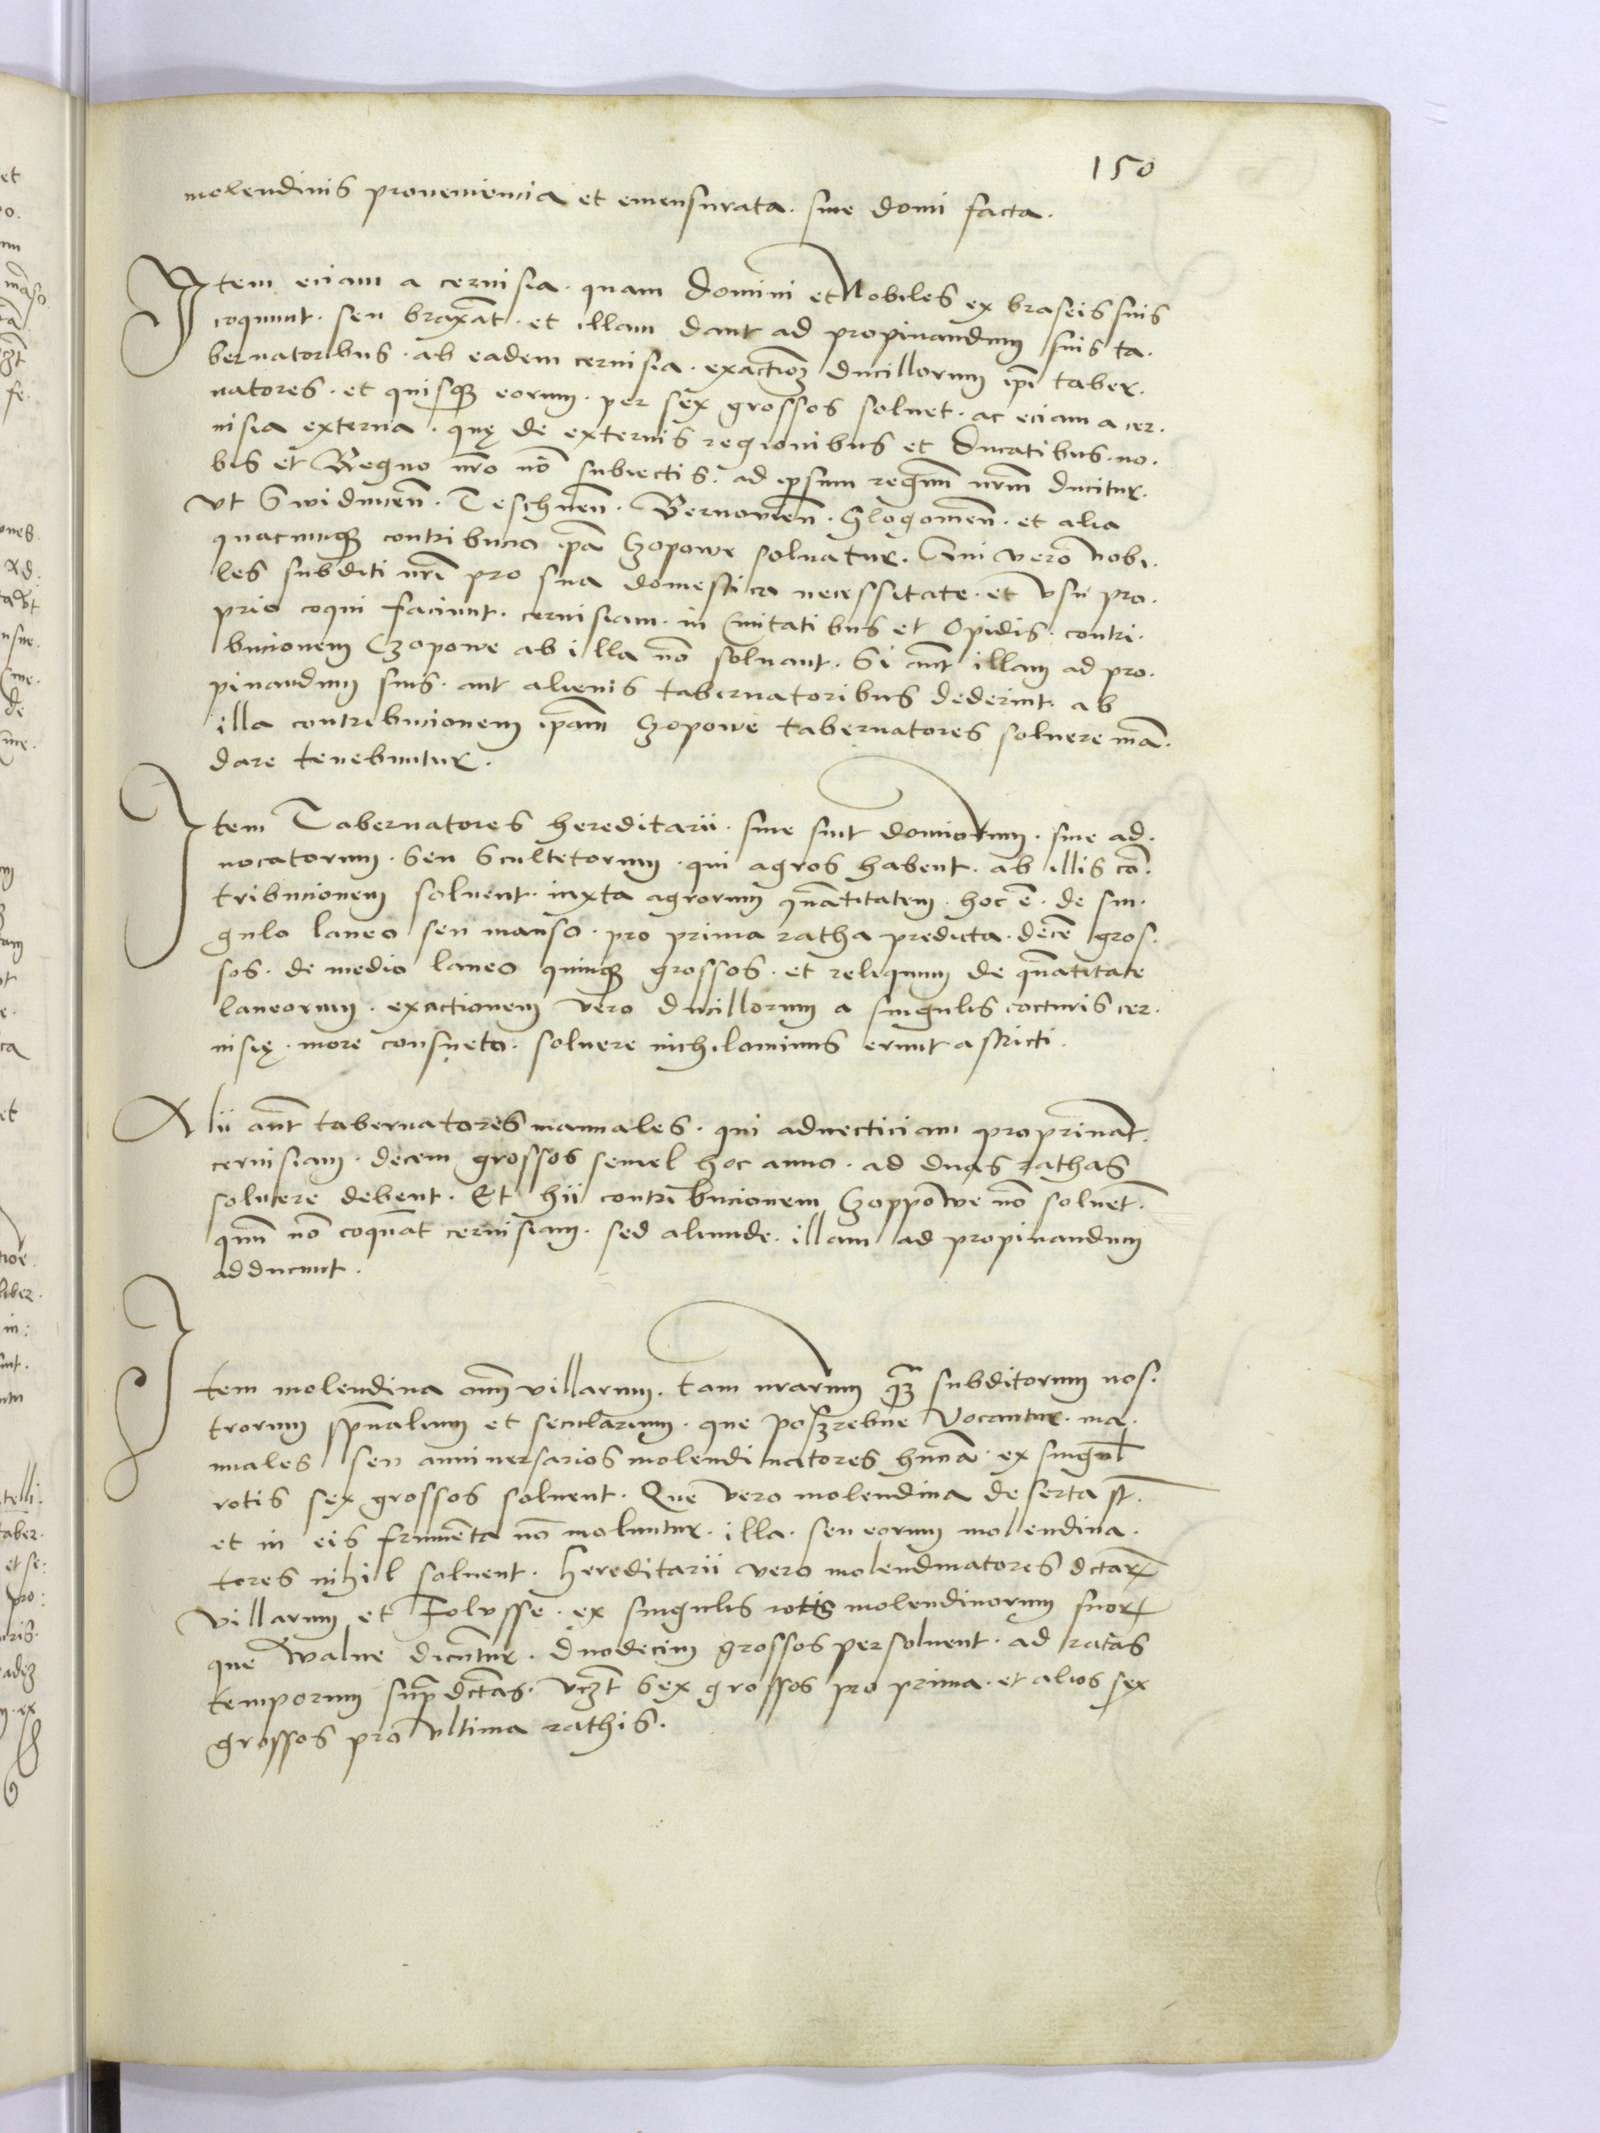 150
molendinis proueniencia et emensurata. siue domi facta.
Item eciam a ceruisia. quam domini et Nobiles ex braseis suis
coquunt. seu braxāt. et illam dant ad propinandum suis ta.
bernatoribus. ab eadem ceruisia. exactioēʒ ducillorum ip̄i taber.
natores. et quisqꝫ eorum. per sex grossos soluet. ac eciam a cer.
uisia externa. quę de externis regionibus et ducatibus. no.
bis et Regno nr̄o nō subiectis. ad ipsum regnum nr̄um ducitur.
vt Swidnicen̄. Teschnen̄. Bernouien̄. Glogouien̄. et alia
quacunqꝫ contribucio ip̄a Czopowe soluatur. Qui vero nobi.
les subditi nr̄i pro sua domestica necessitate. et vsu pro.
prio coqui faciunt. ceruisiam. in Ciuitatibus et Opidis. contri.
bucionem Czopowe ab illa nō soluant. Si aut̄ illam ad pro.
pinandum suis. aut alienis tabernatoribus dederint. ab
illa contribucionem ip̄am Czopowe tabernatores soluere mā.
dare tenebuntur.
Item Tabernatores hereditarii. siue sint dominorum. siue ad.
uocatorum. seu Scultetorum. qui agros habent. ab illis cō.
tribucionem soluent. iuxta agrorum quātitatem. hoc ē. de sin.
gulo laneo seu manso. pro prima ratha predicta. decē gros.
sos. de medio laneo quinqꝫ grossos. et reliquum de quātitate
laneorum. exactionem vero ducillorum a singulis cocturis cer.
uisię. more consueto. soluere nichilominus erunt astricti.
Alii aut̄ tabernatores manuales. qui aduecticiam propināt
ceruisiam. decem grossos semel hoc anno. ad duas rathas
soluere debent. Et hii contribucionem Czoppowe nō soluēt.
quū nō coquāt ceruisiam. sed aliunde. illam ad propinandum
adducunt.
Item molendina om̄ villarum. tam nr̄arum qꝫ̄ subditorum nos.
trorum sp̄ualium et secularium. que poszrebne vocantur. ma.
nuales seu anniuersarios molendinatores hn̄cia. ex singul̄
rotis sex grossos soluent. Que vero molendina deserta st̄.
et in eis frumēta nō moluntur. illa. seu eorum molendina.
tores nihil soluent. Hereditarii vero molendinatores dctarꝝ
villarum et Folusse. ex singulis rotis molendinorum suorꝝ
que walne dicūtur. duodecim grossos persoluent. ad ratas
temporum supradctas. vczt̄ sex grossos pro prima. et alios sex
grossos pro vltima rathis.